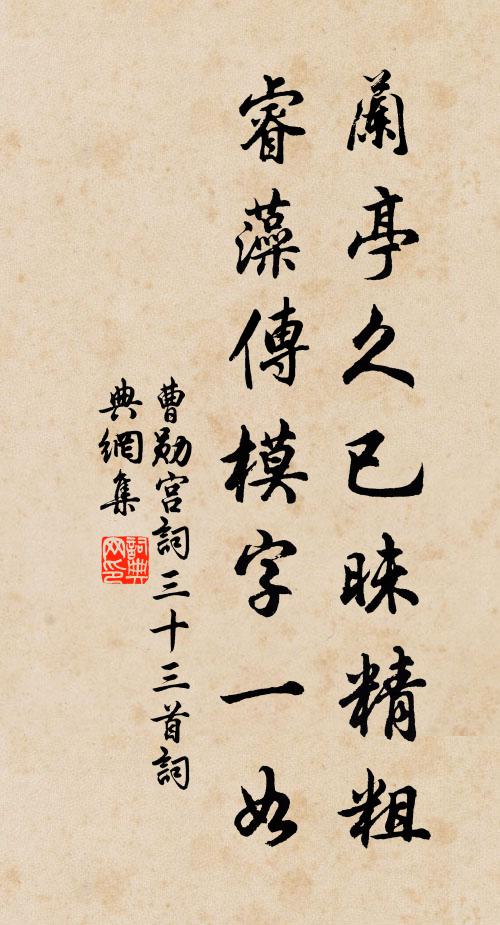 蘭亭久已昧精粗
睿藻傳模字一如
曹勛宫詞三十三首詞
典網集
詞典网印